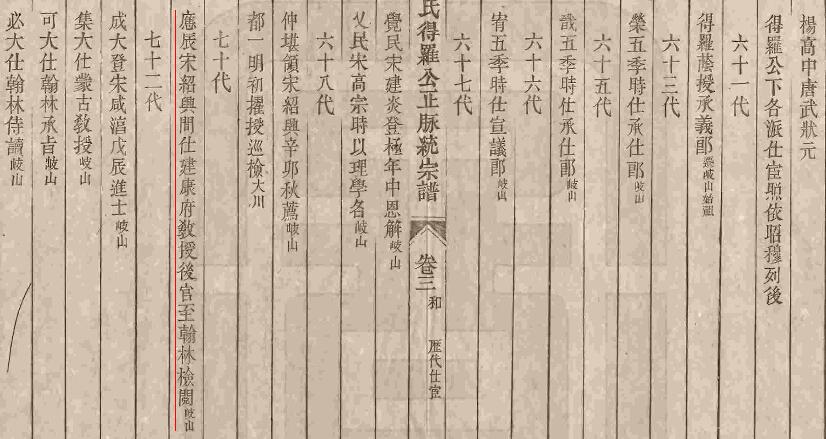 楊高中唐武狀元
得羅公下各派仕宦照依昭穆列後
六十一代
得羅蔭授承義郎遷岐山始祖
六十三代
榮五季時仕承仕郎岐山
六十五代
哉五季時仕承仕郎岐山
六十六代
宥五季時仕宣議郎岐山
六十七代
氏得羅公正脉統宗譜 卷三 和 歷代仕宦
覺民宋建炎登極年中恩解岐山
乂民宋高宗時以理學名岐山
六十八代
仲堪領宋紹興辛卯秋薦岐山
都一明初擢授巡檢大川
七十代
應辰宋紹興間仕建康府教授後官至翰林檢閱岐山
七十二代
成大登宋咸淳戊辰進士岐山
集大仕蒙古教授岐山
可大仕翰林承旨岐山
必大仕翰林侍讀岐山